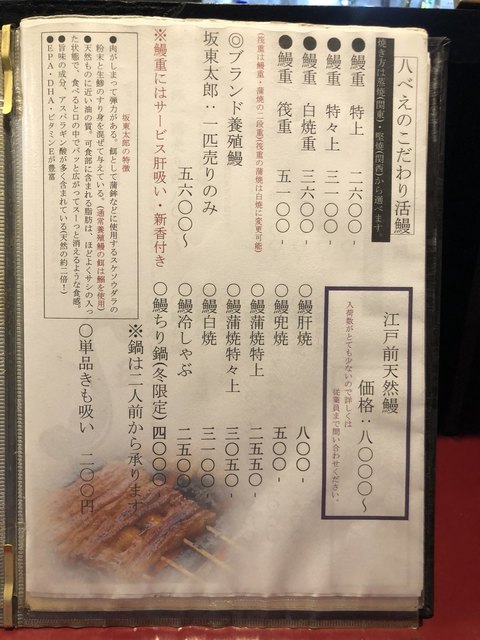 八べえのこだわり活鰻
焼き方は蒸焼(関東)・堅焼(関西)から選べます。
●鰻重 特上 二六〇〇-
●鰻重 特々上 三一〇〇-
●鰻重 白焼重 三六〇〇-
●鰻重 筏重 五一〇〇-
(筏重は鰻重・蒲焼の二段重)(筏重の蒲焼は白焼に変更可能)
◎ブランド養殖鰻
坂東太郎：一匹売りのみ
五六〇〇〜
※鰻重にはサービス肝吸い・新香付き
坂東太郎の特徴
●肉がしまって弾力がある。餌として蒲鉾などに使用するスケソウダラの
粉末と生鯵のすり身を混ぜて与えている。(通常養殖鰻の餌は鰯を使用)
●天然ものに近い油の質。可食部に含まれる脂肪は、ほどよくサシの入っ
た状態で、食べると口の中でパッと広がってスーっと消えるような食感。
●旨味の成分、アスパラギン酸が多く含まれている(天然の約二倍!)
●EPA・DHA・ビタミンEが豊富
江戸前天然鰻
価格：八〇〇〇〜
入荷数がとても少ないので詳しくは
従業員まで問い合わせください。
〇鰻肝焼 八〇〇-
〇鰻兜焼 五〇〇-
〇鰻蒲焼特上 二五五〇-
〇鰻蒲焼特々上 三〇五〇-
〇鰻白焼 三一〇〇-
〇鰻冷しゃぶ 二五〇〇-
〇鰻ちり鍋(冬限定) 四〇〇〇-
※鍋は二人前から承ります
〇単品きも吸い 二〇〇円